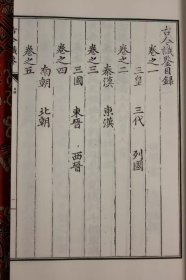 古今識鑒目錄
卷之一
三皇 三代 列國
卷之二
秦漢 東漢
卷之三
三國 東晉 西晉
卷之四
南朝 北朝
卷之五
古今識鑒